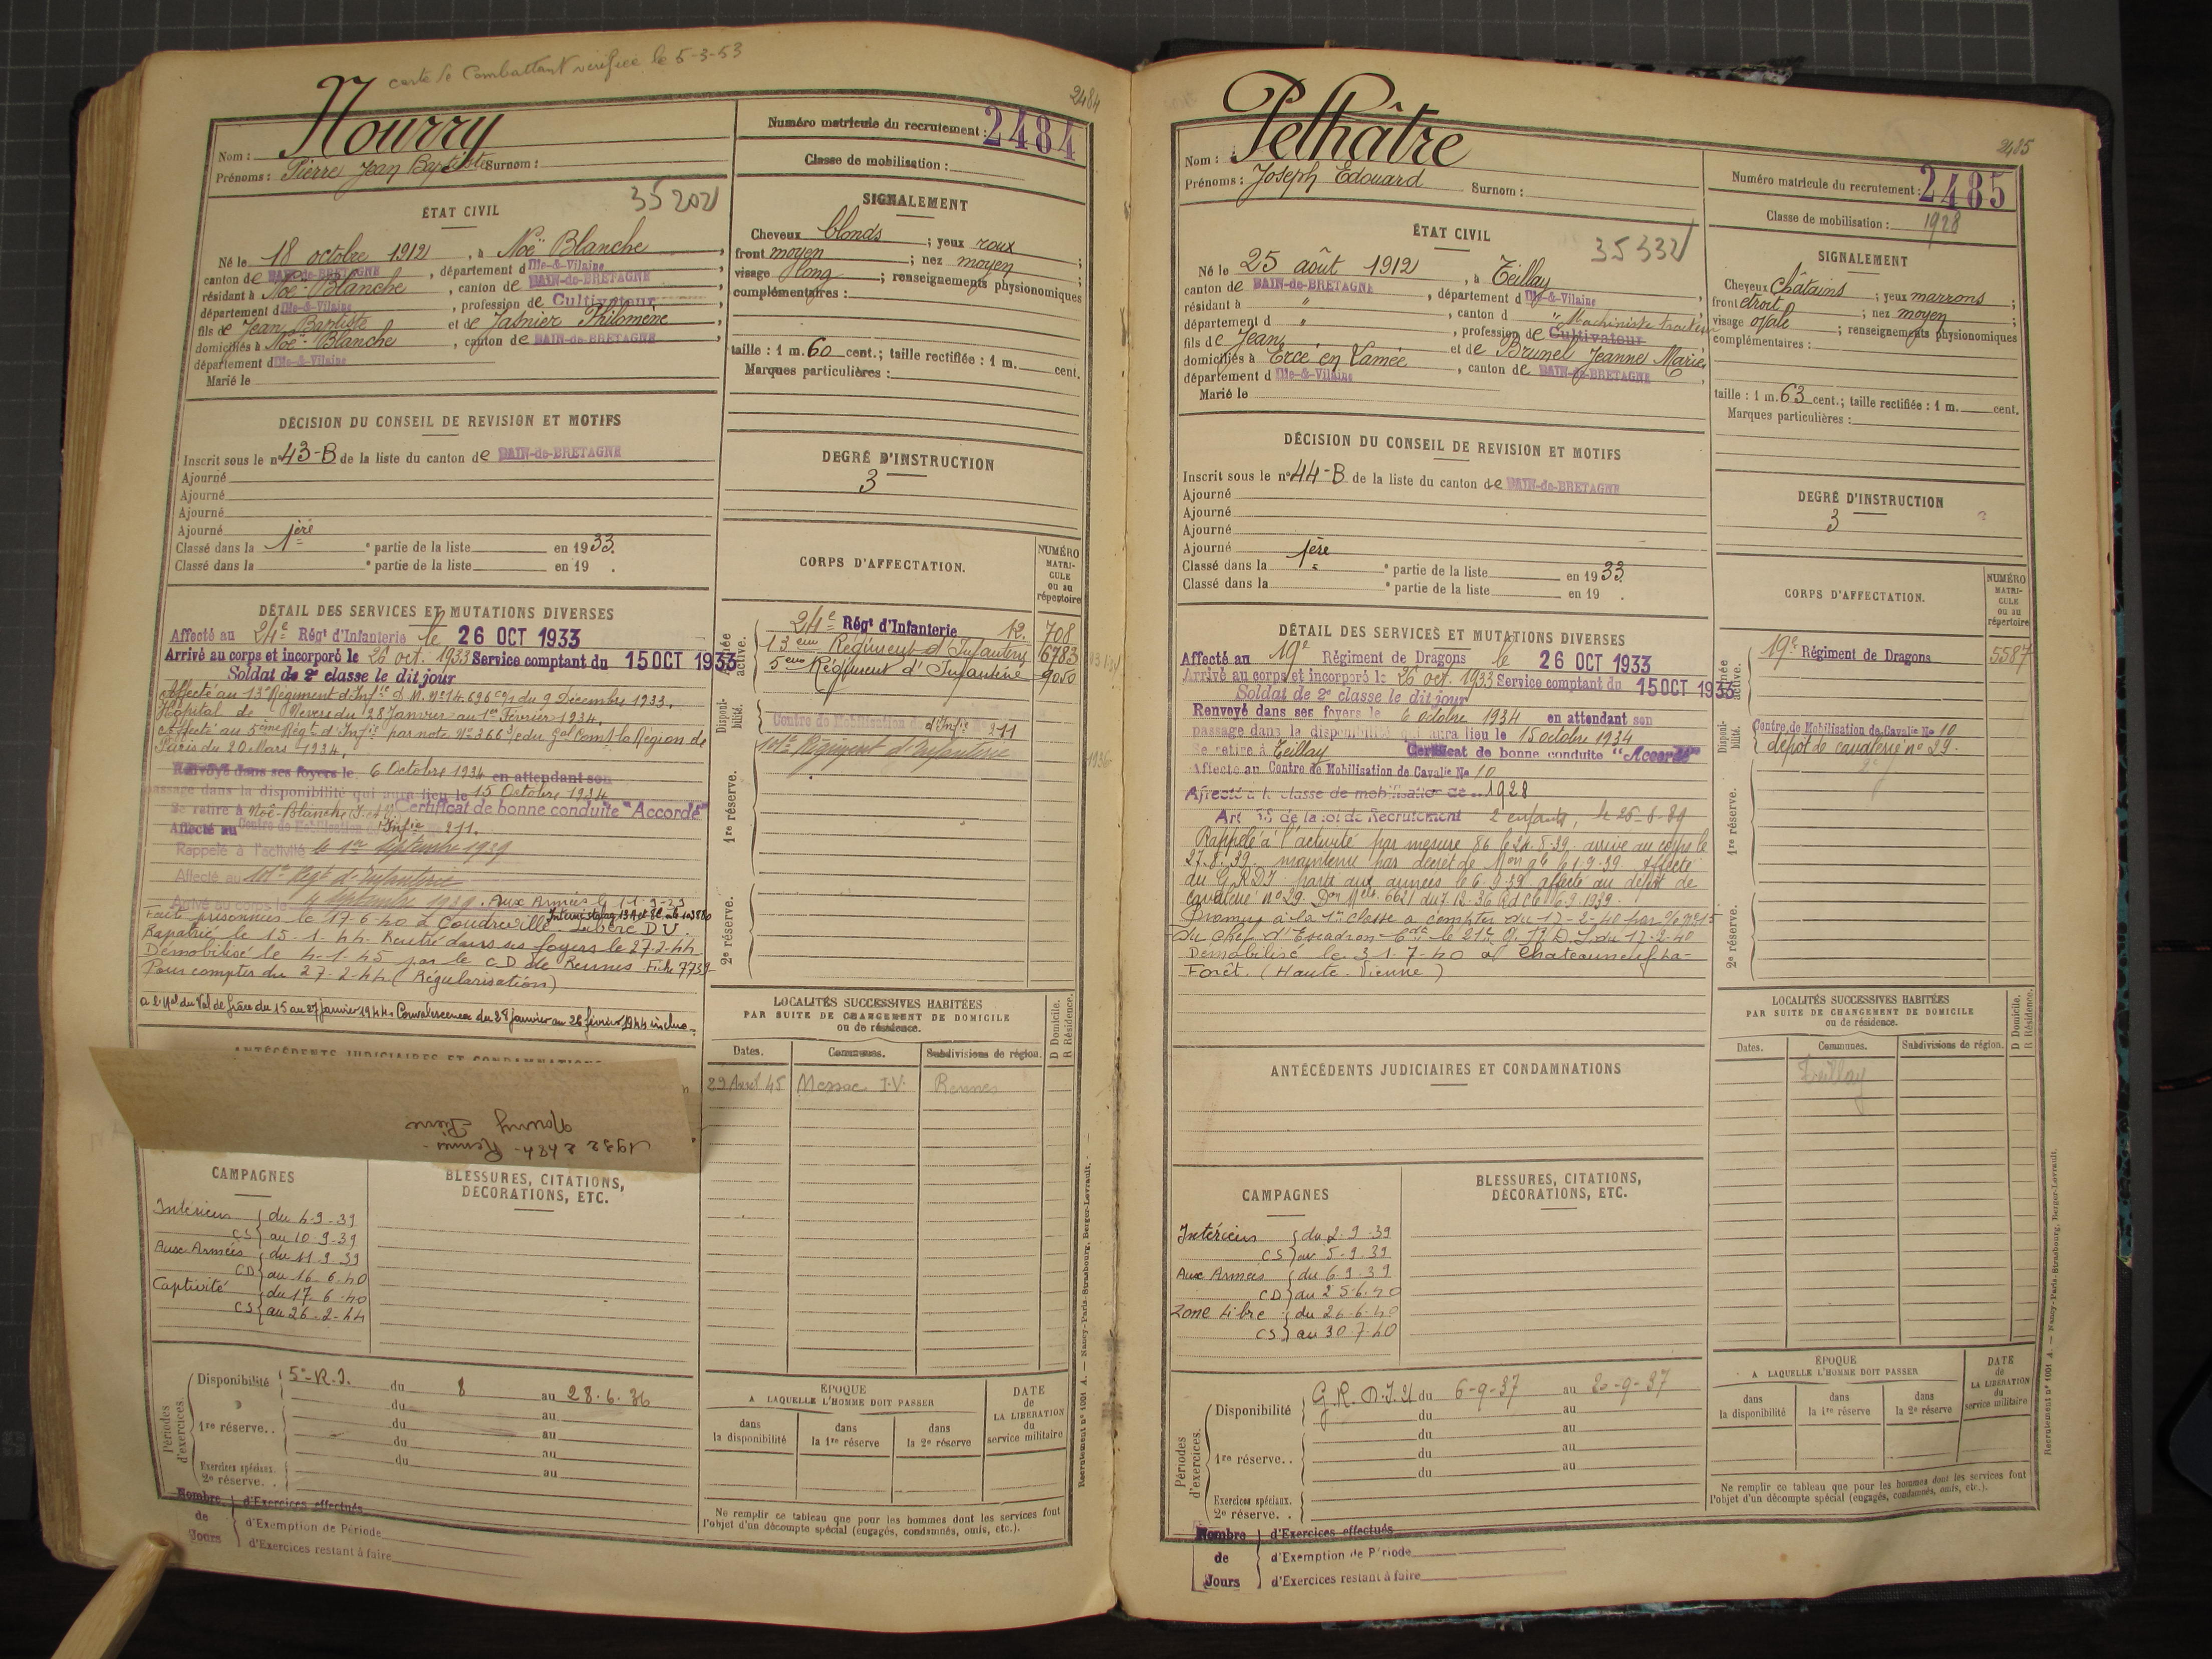 carte de Combattant vérifiée le 5-3-53
2484
Nom : Nourry
Prénoms : Pierre Jean Baptiste Surnom :
Numéro matricule du recrutement : 2484
Classe de mobilisation :
35202
ÉTAT CIVIL
Né le 18 octobre 1912, à Noë Blanche,
canton de BAIN-de-BRETAGNE, département d Ille-&-Vilaine,
résidant à Noë-Blanche, canton de BAIN-de-BRETAGNE,
département d Ille-&-Vilaine, profession de Cultivateur,
fils de Jean Baptiste et de Jasnier Philomène,
domiciliés à Noë-Blanche, canton de BAIN-de-BRETAGNE,
département d Ille-&-Vilaine
Marié le
SIGNALEMENT
Cheveux blonds ; yeux roux ;
front moyen ; nez moyen ;
visage long ; renseignements physionomiques
complémentaires :
taille : 1 m. 60 cent.; taille rectifiée : 1 m. cent.
Marques particulières :
DÉCISION DU CONSEIL DE REVISION ET MOTIFS
Inscrit sous le n° 43-B de la liste du canton de BAIN-de-BRETAGNE
Ajourné
Ajourné
Ajourné
Ajourné
Classé dans la 1ère e partie de la liste en 1933.
Classé dans la e partie de la liste en 19 .
DEGRÉ D'INSTRUCTION
3
DÉTAIL DES SERVICES ET MUTATIONS DIVERSES
Affecté au 24e Régt d'Infanterie le 26 OCT 1933
Arrivé au corps et incorporé le 26 oct. 1933 Service comptant du 15 OCT 1933
Soldat de 2e classe le dit jour
Affecté au 13e Régiment d'Infie d. M. N° 14.696 du 9 Décembre 1933.
Hôpital de Nevers du 28 Janvier au 1er Février 1934.
Affecté au 5ème Régt d'Infie par note N° 366 du Gal Comt la Région de
Paris du 20 Mars 1934.
Renvoyé dans ses foyers le 6 Octobre 1934 en attendant son
passage dans la disponibilité qui aura lieu le 15 Octobre 1934
Se retire à Noë-Blanche Certificat de bonne conduite "Accordé"
Affecté au Centre de Mobilisation d'Infie 211.
Rappelé à l'activité le 1er Septembre 1939
Affecté au 101e Régt d'Infanterie
Arrivé au corps le 4 Septembre 1939. Aux Armées le 11-9-39
Fait prisonnier le 17-6-40 à Coudreville. Interné stalag Libéré D.U.
Rapatrié le 15.1.44. Rentré dans ses foyers le 27.2.44
Démobilisé le 4-1-45 par le CD de Rennes Fiche 7739
Pour compter du 27-2-44 (Régularisation)
a l'Hal du Val de Grâce du 15 au 27 janvier 1944. Convalescence du 28 janvier au 26 février 1944 inclus.
CORPS D'AFFECTATION.
NUMÉRO MATRICULE ou au répertoire
Armée active.
24e Régt d'Infanterie 12. 708
13ème Régiment d'Infanterie 6783
5ème Régiment d'Infanterie 9050
Disponibilité.
Centre de Mobilisation d'Infie 211
101e Régiment d'Infanterie
1re réserve.
2e réserve.
LOCALITÉS SUCCESSIVES HABITÉES
PAR SUITE DE CHANGEMENT DE DOMICILE
ou de résidence.
Dates. Communes. Subdivisions de région. D Domicile. R Résidence.
29 Avril 45 Messac I.V. Rennes
ANTÉCÉDENTS JUDICIAIRES ET CONDAMNATIONS
1932 2484 - Rennes -
Nourry Pierre
CAMPAGNES
Intérieur du 4-9-39
CS au 10-9-39
Aux Armées du 11-9-39
CD au 16-6-40
Captivité du 17-6-40
CS au 26-2-44
BLESSURES, CITATIONS,
DÉCORATIONS, ETC.
Périodes d'exercices.
Disponibilité 5e R.I. du 8 au 28.6.36
du au
1re réserve. . du au
du au
du au
Exercices spéciaux.
2e réserve. .
au
Nombre de Jours
d'Exercices effectués
d'Exemption de Période
d'Exercices restant à faire
ÉPOQUE
A LAQUELLE L'HOMME DOIT PASSER
dans la disponibilité
dans la 1re réserve
dans la 2e réserve
DATE de LA LIBÉRATION du service militaire
Ne remplir ce tableau que pour les hommes dont les services font
l'objet d'un décompte spécial (engagés, condamnés, omis, etc.).
Recrutement n° 1001 A. — Nancy-Paris-Strasbourg, Berger-Levrault.
2485
Nom : Pelhâtre
Prénoms : Joseph Edouard Surnom :
Numéro matricule du recrutement : 2485
Classe de mobilisation : 1928
35332
ÉTAT CIVIL
Né le 25 août 1912, à Teillay,
canton de BAIN-de-BRETAGNE, département d Ille-&-Vilaine,
résidant à ", canton d "
département d ", profession de Cultivateur Machiniste tracteur
fils de Jean et de Brunel Jeanne Marie,
domiciliés à Ercé en Lamée, canton de BAIN-de-BRETAGNE,
département d Ille-&-Vilaine
Marié le
SIGNALEMENT
Cheveux châtains ; yeux marrons ;
front étroit ; nez moyen ;
visage ovale ; renseignements physionomiques
complémentaires :
taille : 1 m. 63 cent.; taille rectifiée : 1 m. cent.
Marques particulières :
DÉCISION DU CONSEIL DE REVISION ET MOTIFS
Inscrit sous le n° 44-B de la liste du canton de BAIN-de-BRETAGNE
Ajourné
Ajourné
Ajourné
Ajourné
Classé dans la 1ère e partie de la liste en 1933
Classé dans la e partie de la liste en 19 .
DEGRÉ D'INSTRUCTION
3
DÉTAIL DES SERVICES ET MUTATIONS DIVERSES
Affecté au 19e Régiment de Dragons le 26 OCT 1933
Arrivé au corps et incorporé le 26 oct. 1933 Service comptant du 15 OCT 1933
Soldat de 2e classe le dit jour
Renvoyé dans ses foyers le 6 octobre 1934 en attendant son
passage dans la disponibilité qui aura lieu le 15 octobre 1934
Se retire à Teillay Certificat de bonne conduite "Accordé"
Affecté au Centre de Mobilisation de Cavalie No 10
Affecté à la classe de mobilisation de 1928
Art 58 de la loi de Recrutement 2 enfants, le 26-8-39
Rappelé à l'activité par mesure 86 le 24.8.39 arrivé au corps le
27.8.39. maintenu par décret de Mon gle 1.9.39 affecté
au G.R.D.I. parti aux armées le 6.9.39 affecté au dépôt de
cavalerie n° 29. Don Mele 6621 du 7.12.36
Promu à la 1re classe à compter du 17-2-40
du Chef d'Escadron Cdt le 21e G.R.D.I. du 17.2.40
Démobilisé le 31-7-40 à Chateauneuf-la-
Forêt. (Haute-Vienne)
CORPS D'AFFECTATION.
NUMÉRO MATRICULE ou au répertoire
Armée active.
19e Régiment de Dragons 5587
Disponibilité.
Centre de Mobilisation de Cavalie No 10
dépôt de cavalerie n° 29.
1re réserve.
2e réserve.
LOCALITÉS SUCCESSIVES HABITÉES
PAR SUITE DE CHANGEMENT DE DOMICILE
ou de résidence.
Dates. Communes. Subdivisions de région. D Domicile. R Résidence.
Teillay
ANTÉCÉDENTS JUDICIAIRES ET CONDAMNATIONS
CAMPAGNES
Intérieur du 2-9-39
CS au 5-9-39
Aux Armées du 6-9-39
CD au 25-6-40
Zone Libre du 26-6-40
CS au 30-7-40
BLESSURES, CITATIONS,
DÉCORATIONS, ETC.
Périodes d'exercices.
Disponibilité G.R.D.I. 21 du 6-9-37 au 20-9-37
du au
1re réserve. . du au
du au
du au
Exercices spéciaux.
2e réserve. .
Nombre de Jours
d'Exercices effectués
d'Exemption de Période
d'Exercices restant à faire
ÉPOQUE
A LAQUELLE L'HOMME DOIT PASSER
dans la disponibilité
dans la 1re réserve
dans la 2e réserve
DATE de LA LIBÉRATION du service militaire
Ne remplir ce tableau que pour les hommes dont les services font
l'objet d'un décompte spécial (engagés, condamnés, omis, etc.).
Recrutement n° 1001 A. — Nancy-Paris-Strasbourg, Berger-Levrault.